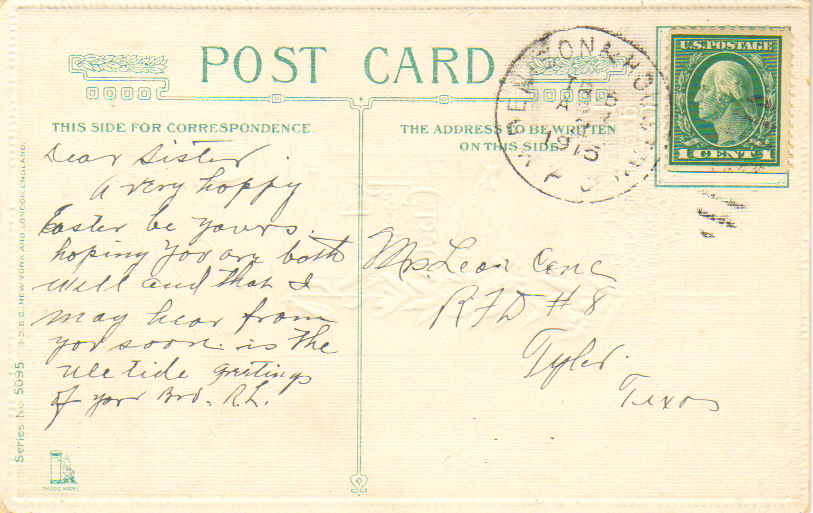 POST CARD
THIS SIDE FOR CORRESPONDENCE.
THE ADDRESS TO BE WRITTEN
ON THIS SIDE.
U.S. POSTAGE
1 CENT 1
1915
Dear Sister.
A very happy
Easter be yours.
hoping you are both
well and that I
may hear from
you soon. is the
tide greetings
of your Bro. R.L.
Mrs. Leon
RFD #8
Tyler.
Texas
Series No. 5095
NEW YORK AND LONDON, ENGLAND.